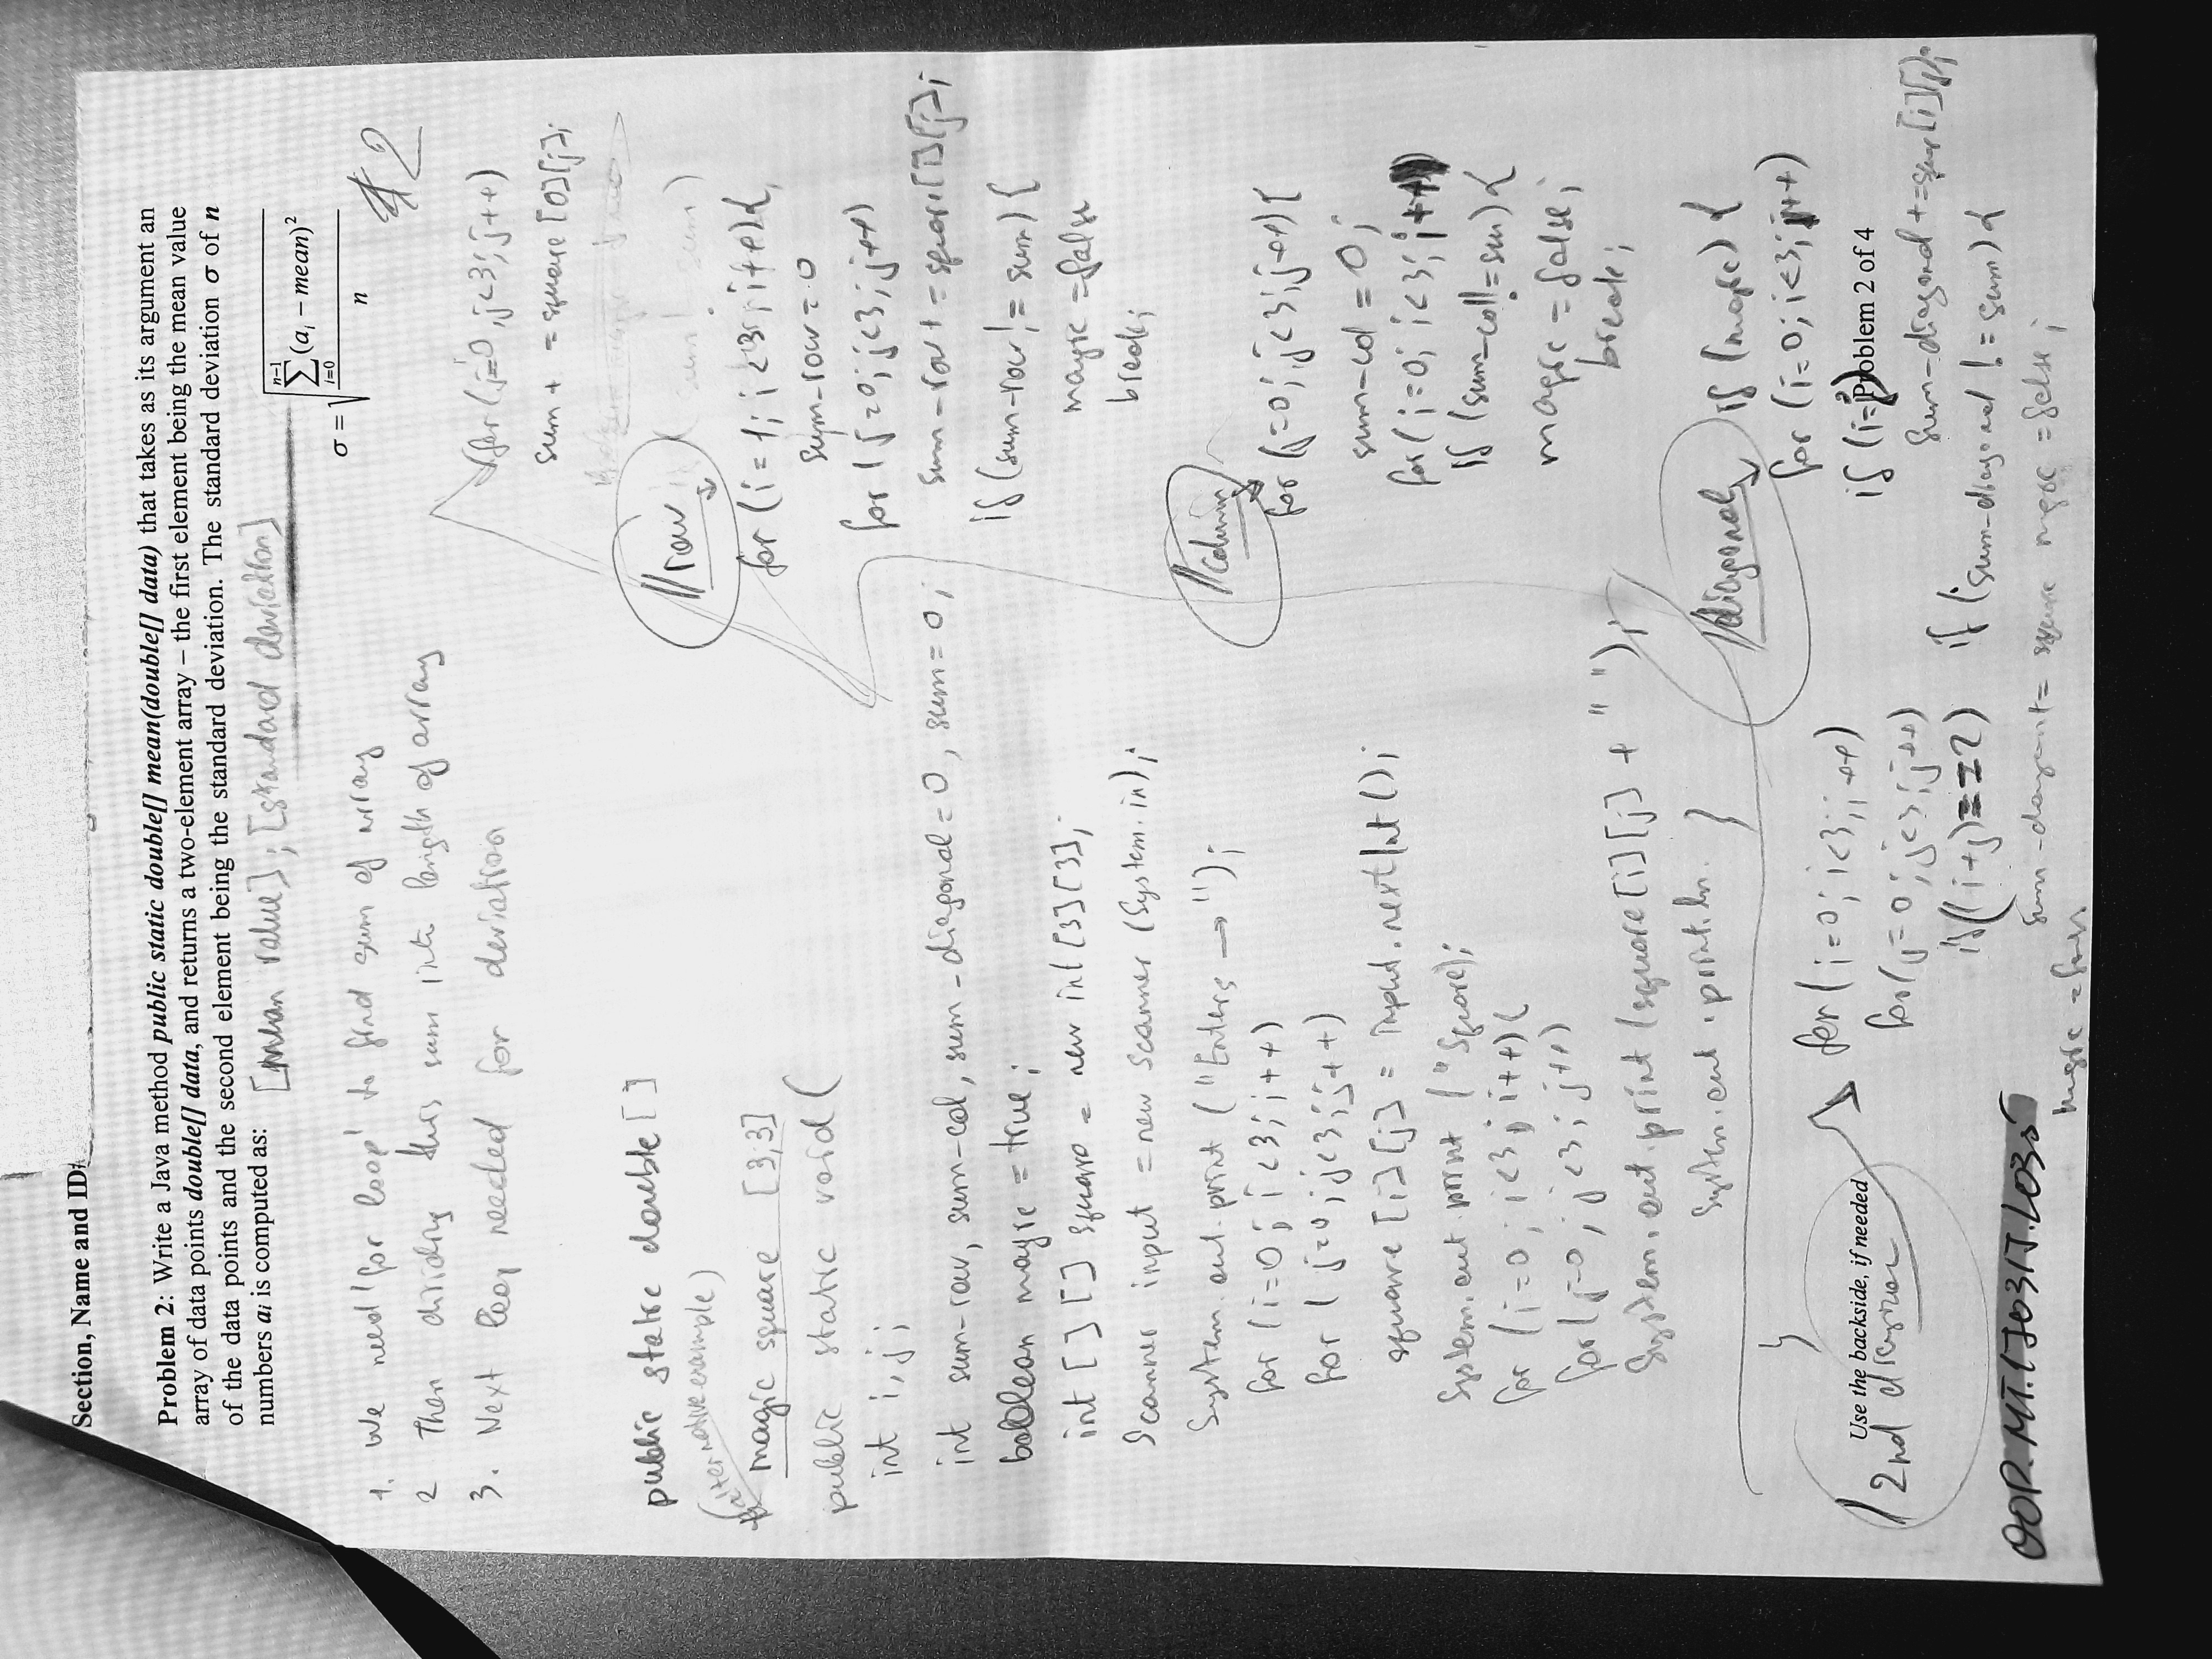 Section, Name and ID#
Problem 2: Write a Java method public static double[] mean(double[] data) that takes as its argument an
array of data points double[] data, and returns a two-element array – the first element being the mean value
of the data points and the second element being the standard deviation. The standard deviation σ of n
numbers ai is computed as:
[mean value]; [standard deviation]
σ = √(∑(ai – mean)² / n) n-1 i=0
1. We need 'for loop' to find sum of array
2 Then dividing this sum into length of array
3. Next loop needed for deviation
2
public static double []
(alternative example)
magic square [3,3]
public static void (
int i, j;
int sum-row, sum-col, sum-diagonal = 0, sum = 0;
boolean magic = true;
int [] [] square = new int [3] [3];
Scanner input = new Scanner (System.in);
System.out.print ("Enters → ");
for (i=0; i<3; i++)
for (j=0; j<3; j++)
square [i][j] = input.nextInt ();
System.out.print ("Square);
for (i=0; i<3; i++) {
for (j=0; j<3; j++)
System.out.print (square[i][j] + " ");
System.out.print.ln. }
for (j=0, j<3; j++)
sum + = square [0][j];
//row
for (i=1; i<3; i++) {
sum-row = 0
for (j=0; j<3; j++)
sum-row + = square[i][j];
if (sum-row != sum) {
magic = false
break;
//column
for (j=0; j<3; j++) {
sum-col = 0;
for (i=0; i<3; i++)
if (sum-col != sum) {
magic = false;
break;
//diagonal
if (magic) {
for (i=0; i<3; j++)
if (i=j)
sum-diagonal += [i][j];
if (sum-diagonal != sum) {
magic = false;
2nd
for (i=0; i<3; i++)
for (j=0; j<3; j++)
if ((i+j)==2)
square
magic =
Use the backside, if needed
Problem 2 of 4
OOP.MT.170315.L035